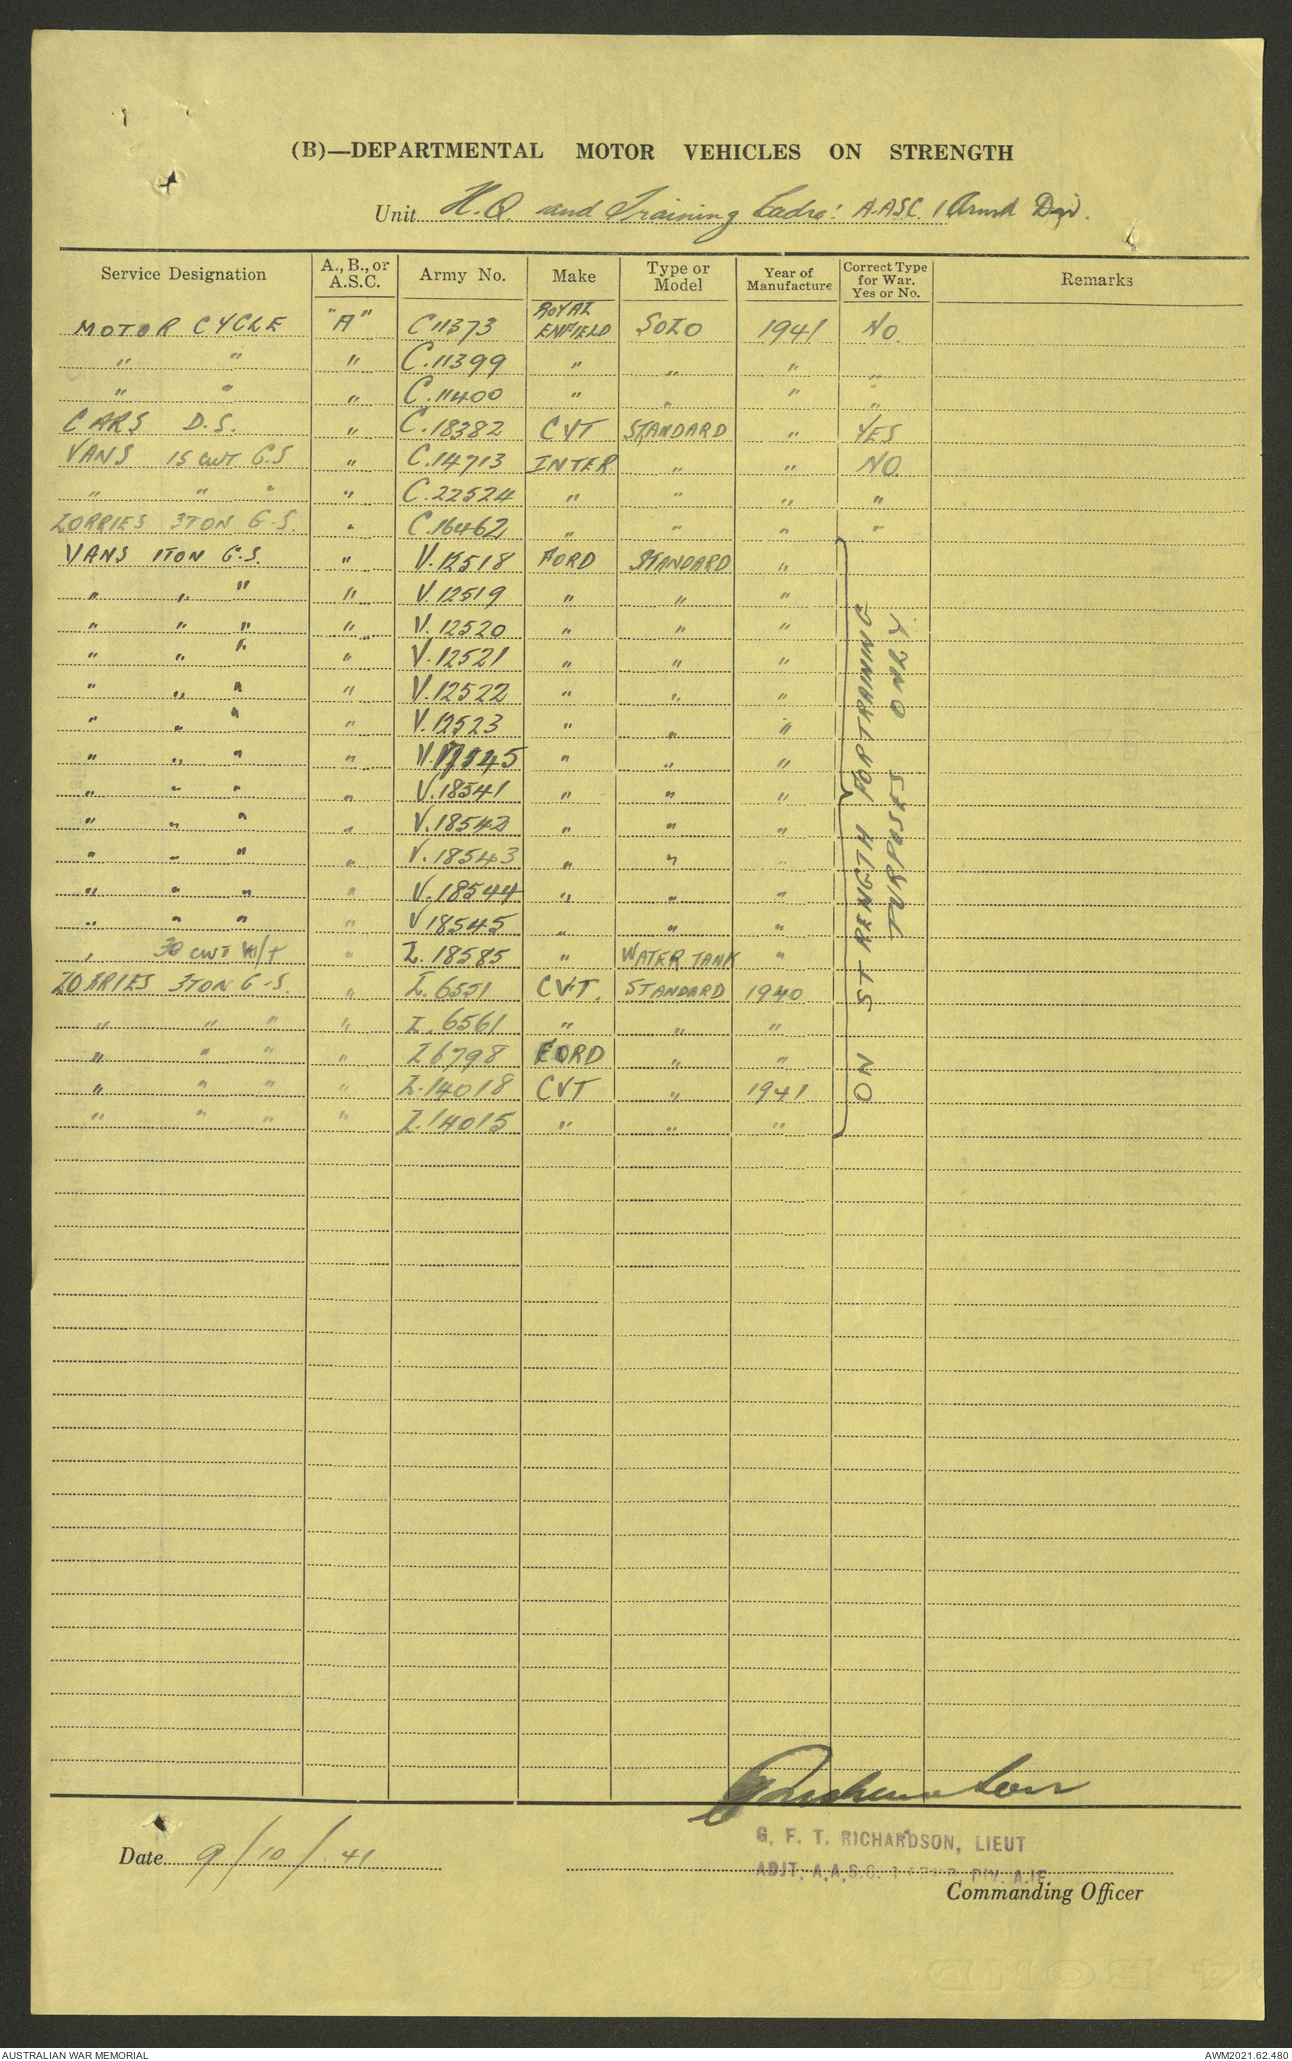 (B)—DEPARTMENTAL MOTOR VEHICLES ON STRENGTH
Unit H.Q. and Training Cadre: A.A.S.C. 1 Armd Div.
Service Designation A., B., or A.S.C. Army No. Make Type or Model Year of Manufacture Correct Type for War. Yes or No. Remarks
MOTOR CYCLE "A" C11373 ROYAL ENFIELD SOLO 1941 NO.
" " " C.11399 " " " "
" " " C.11400 " " " "
CARS D.S. " C.18382 CVT STANDARD " YES
VANS 15 CWT G.S " C.14713 INTER " " NO.
" " " " C.22524 " " " "
LORRIES 3TON G.S. " C.16462 " " " "
VANS 1TON G.S. " V.12518 FORD STANDARD "
" " " " V.12519 " " "
" " " " V.12520 " " "
" " " " V.12521 " " "
" " " " V.12522 " " "
" " " " V.12523 " " "
" " " " " " "
" " " " V.18541 " " "
" " " " V.18542 " " "
" " " " V.18543 " " "
" " " " V.18544 " " "
" " " " V18545 " " "
" 30 CWT W/T " L.18585 " WATER TANK "
LORRIES 3TON G.S. " L.6551 CVT. STANDARD 1940
" " " " L.6561 " " "
" " " " L6798 FORD " "
" " " " L.14018 CVT " 1941
" " " " L.14015 " " "
ON STRENGTH FOR TRAINING
PURPOSES ONLY
G. F. T. RICHARDSON, LIEUT
ADJT. A.A.S.C. 1 ARMD. DIV. A.I.F.
Date 9/10/41.
Commanding Officer
BOND
AUSTRALIAN WAR MEMORIAL AWM2021.62.480